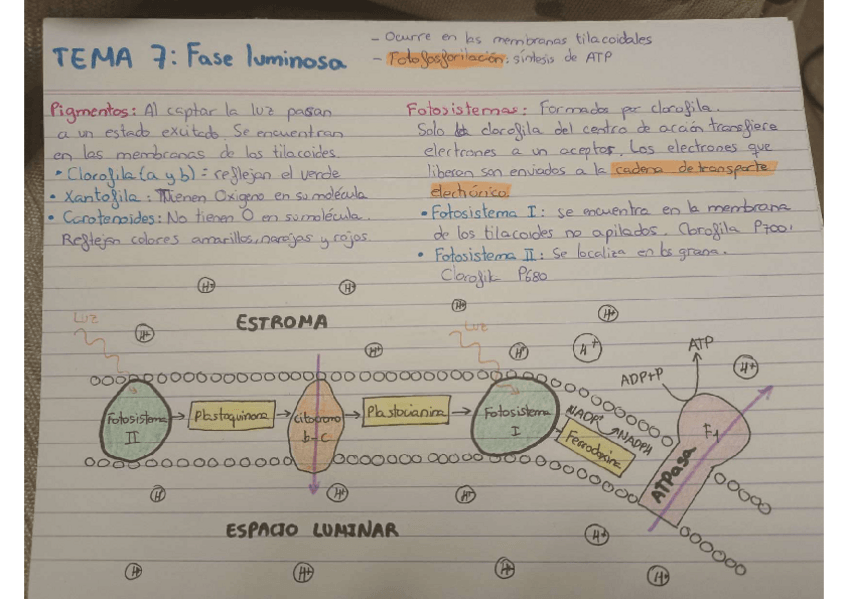 TEMA 7: Fase luminosa
- Ocurre en las membranas tilacoidales
- Fotofosforilación: síntesis de ATP
Pigmentos: Al captar la luz pasan
a un estado excitado. Se encuentran
en las membranas de los tilacoides.
• Clorofila (a y b): reflejan el verde
• Xantofila: Tienen Oxígeno en su molécula
• Carotenoides: No tienen O en su molécula.
Reflejan colores amarillos, naranjas y rojos.
Fotosistemas: Formados por clorofila.
Solo la clorofila del centro de acción transfiere
electrones a un aceptor. Los electrones que
liberan son enviados a la cadena de transporte
electrónico.
• Fotosistema I: se encuentra en la membrana
de los tilacoides no apilados. Clorofila P700.
• Fotosistema II: Se localiza en los grana.
Clorofila P680
H+ H+
H+ H+
ESTROMA
LUZ
LUZ
H+ H+ H+ H+
ATP
H+
ADP+P
Fotosistema
II
Plastoquinona
Citocromo
b-c
Plastocianina
Fotosistema
I
NADP+
NADPH
Ferrodoxina
F1
ATPasa
H+ H+ H+
ESPACIO LUMINAR
H+
H+ H+ H+ H+